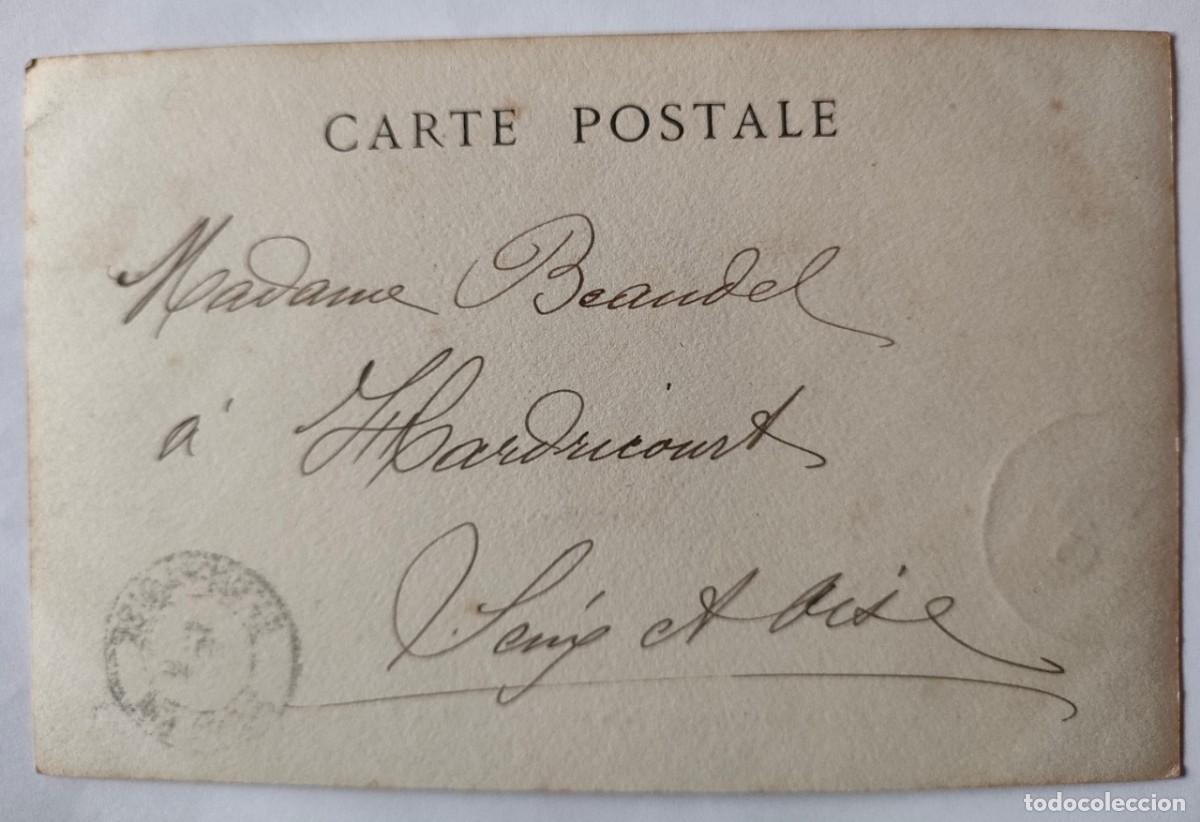 CARTE POSTALE
Madame Beaudel
à Hardricourt
Seine et Oise
todocoleccion